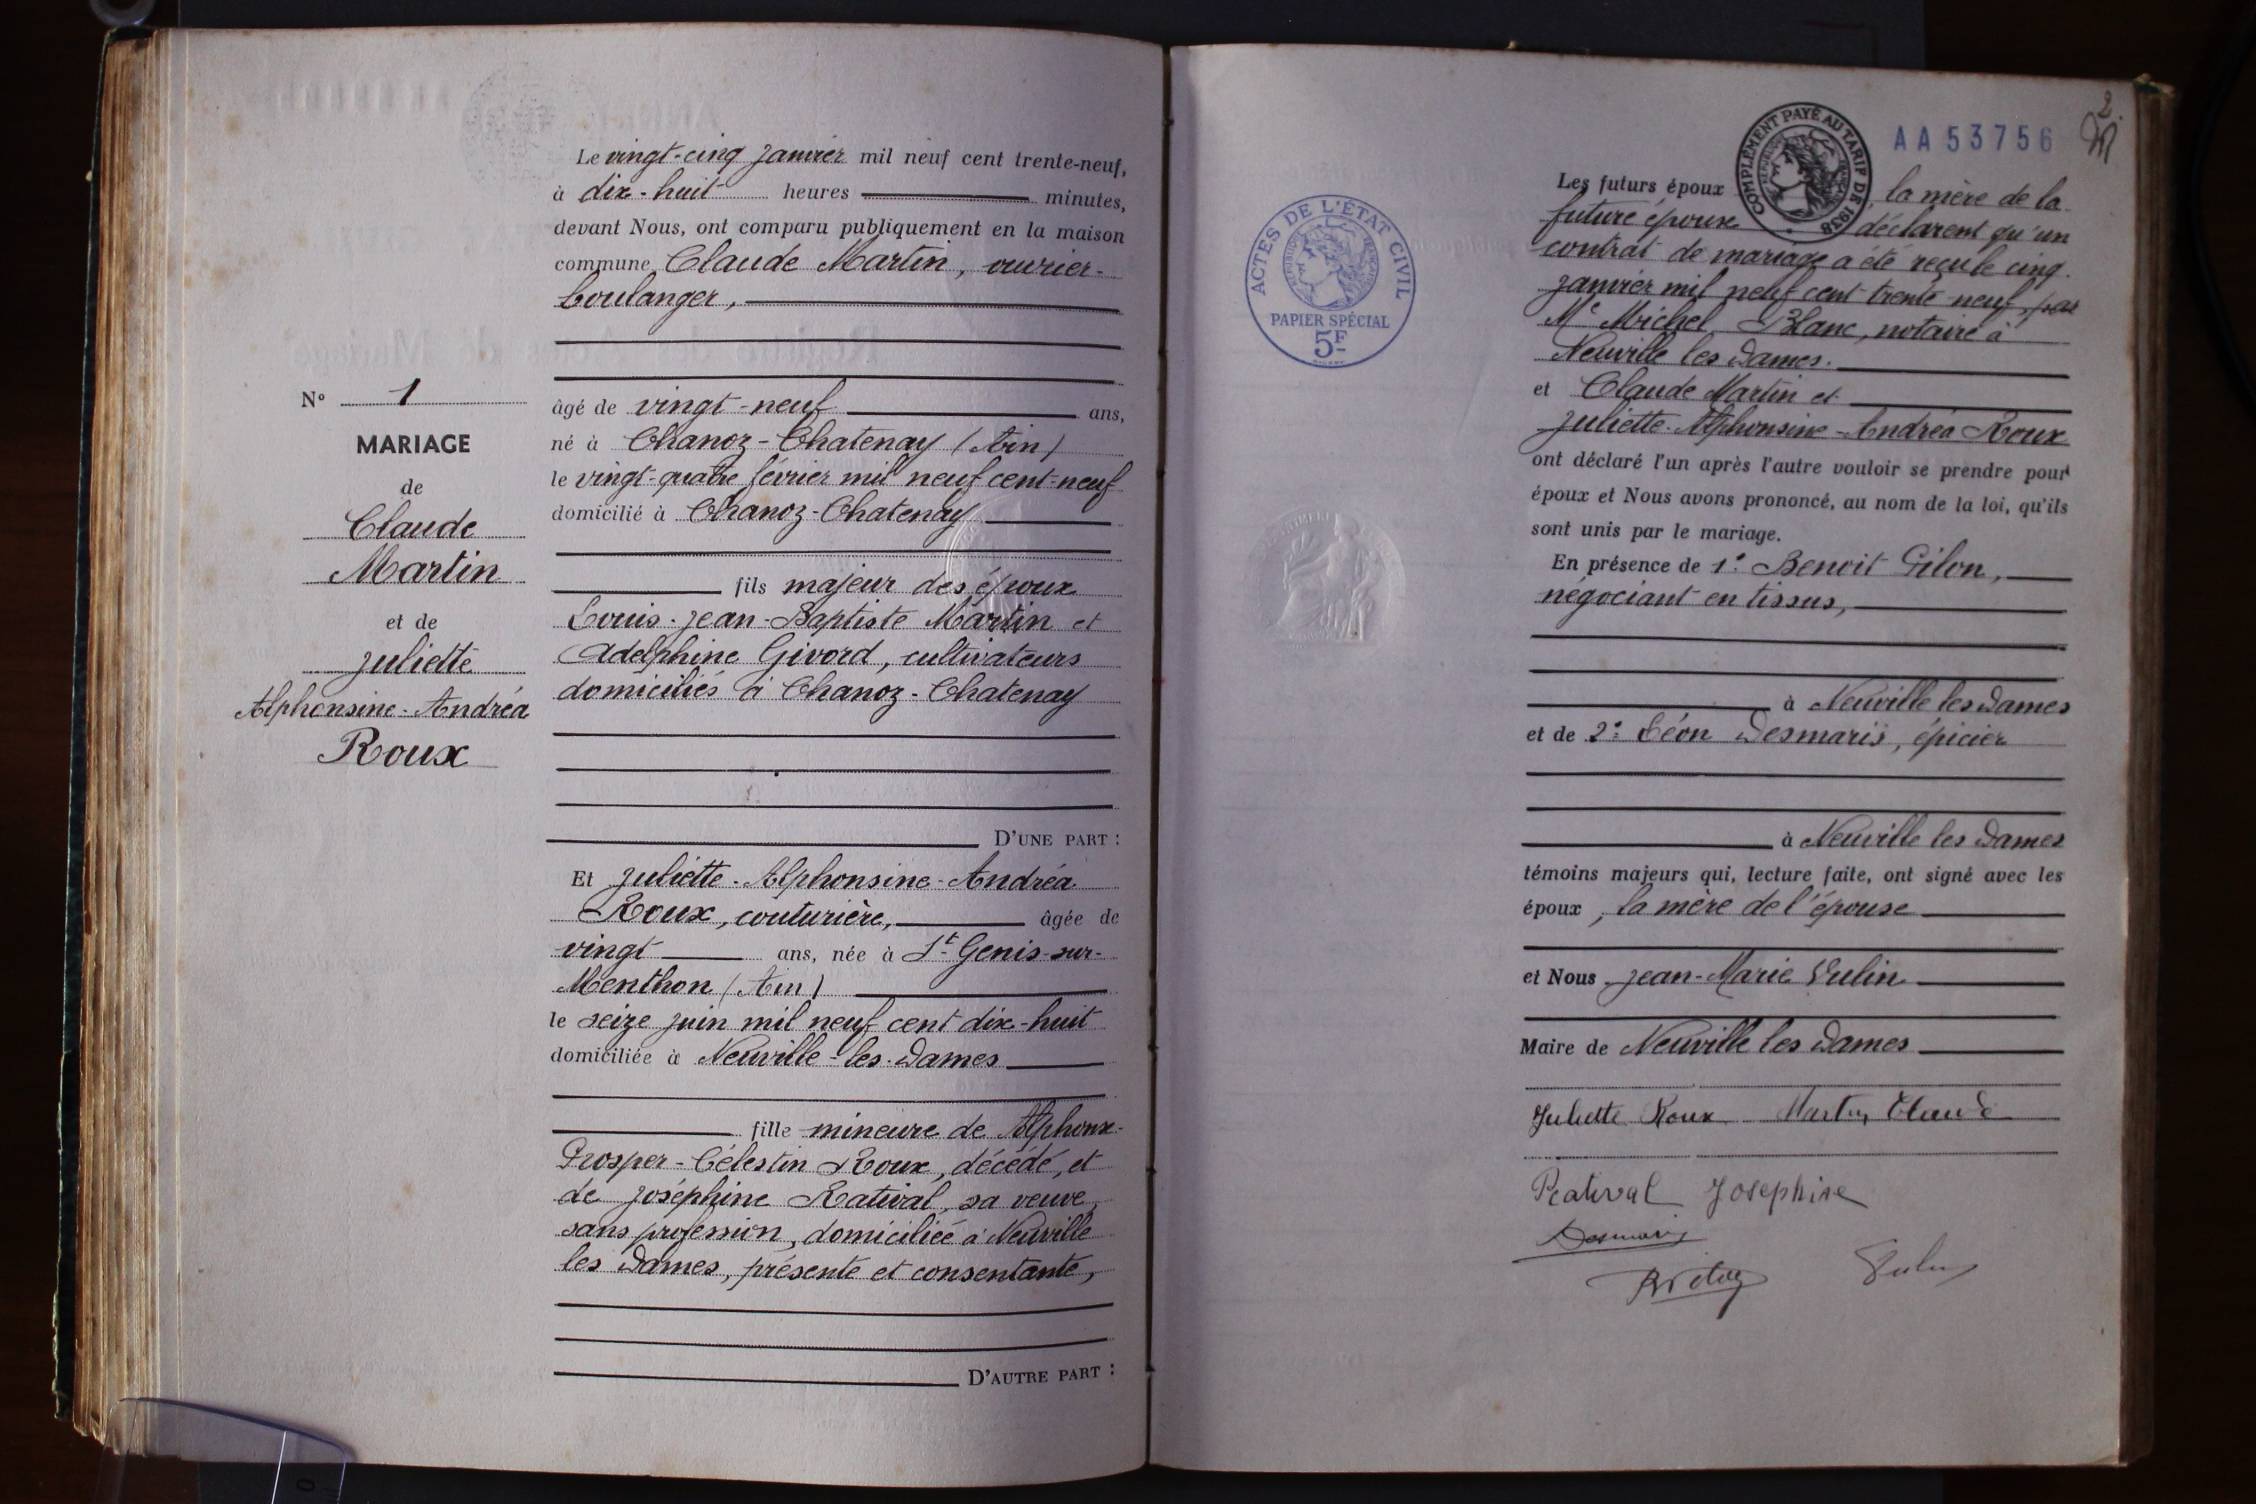 N° 1
MARIAGE
de
Claude
Martin
et de
Juliette
Alphonsine-Andréa
Roux
Le vingt-cinq janvier mil neuf cent trente-neuf,
à dix-huit heures minutes,
devant Nous, ont comparu publiquement en la maison
commune, Claude Martin, ouvrier-
boulanger,
âgé de vingt-neuf ans,
né à Chanoz-Chatenay (Ain)
le vingt-quatre février mil neuf cent-neuf
domicilié à Chanoz-Chatenay
fils majeur des époux
Louis-Jean-Baptiste Martin et
Adelphine Givord, cultivateurs
domiciliés à Chanoz-Chatenay
D'UNE PART :
Et Juliette-Alphonsine-Andréa
Roux, couturière, âgée de
vingt ans, née à St Genis-sur-
Menthon (Ain)
le seize juin mil neuf cent dix-huit
domiciliée à Neuville-les-Dames
fille mineure de Alphonse-
Prosper-Célestin Roux, décédé, et
de Joséphine Ratival, sa veuve,
sans profession, domiciliée à Neuville
les Dames, présente et consentante,
D'AUTRE PART :
ACTES DE L'ÉTAT CIVIL
RÉPUBLIQUE FRANÇAISE
PAPIER SPÉCIAL
5F
COMPLÉMENT PAYÉ AU TARIF DE 1938
AA53756
2.
Les futurs époux, la mère de la
future épouse déclarent qu'un
contrat de mariage a été reçu le cinq
janvier mil neuf cent trente-neuf, par
Me Michel Blanc, notaire à
Neuville les Dames.
et Claude Martin et
Juliette-Alphonsine-Andréa Roux
ont déclaré l'un après l'autre vouloir se prendre pour
époux et Nous avons prononcé, au nom de la loi, qu'ils
sont unis par le mariage.
En présence de 1° Benoit Gilon,
négociant en tissus,
à Neuville les Dames
et de 2° Léon Desmaris, épicier
à Neuville les Dames
témoins majeurs qui, lecture faite, ont signé avec les
époux, la mère de l'épouse
et Nous Jean-Marie Vulin
Maire de Neuville les Dames
Juliette Roux Martin Claude
Ratival Josephine
Desmaris
Vulin